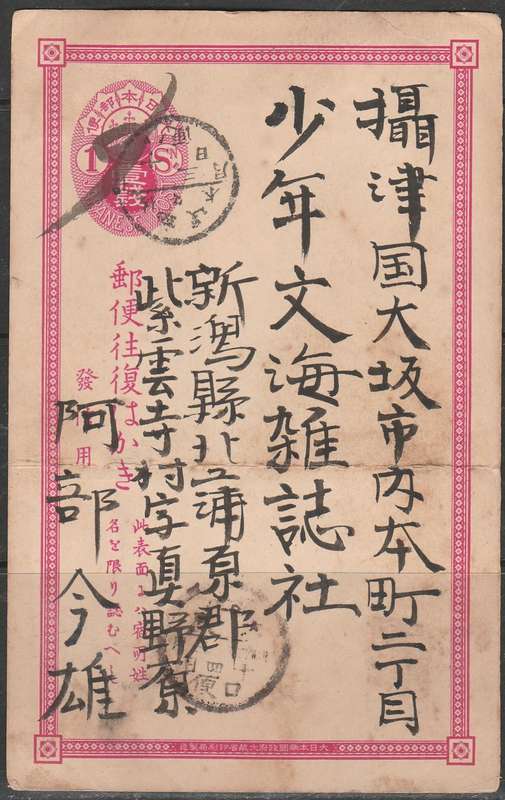 攝津国大坂市内本町二丁目
少年文海雑誌社
新潟縣北蒲原郡
紫雲寺村字真野原
阿部今雄
大日本帝國政府大蔵省印刷局製造
日本郵便
1 SN
壹錢
郵便往復はかき
發信用
此表面ニハ宿所姓
名を限り認むへし